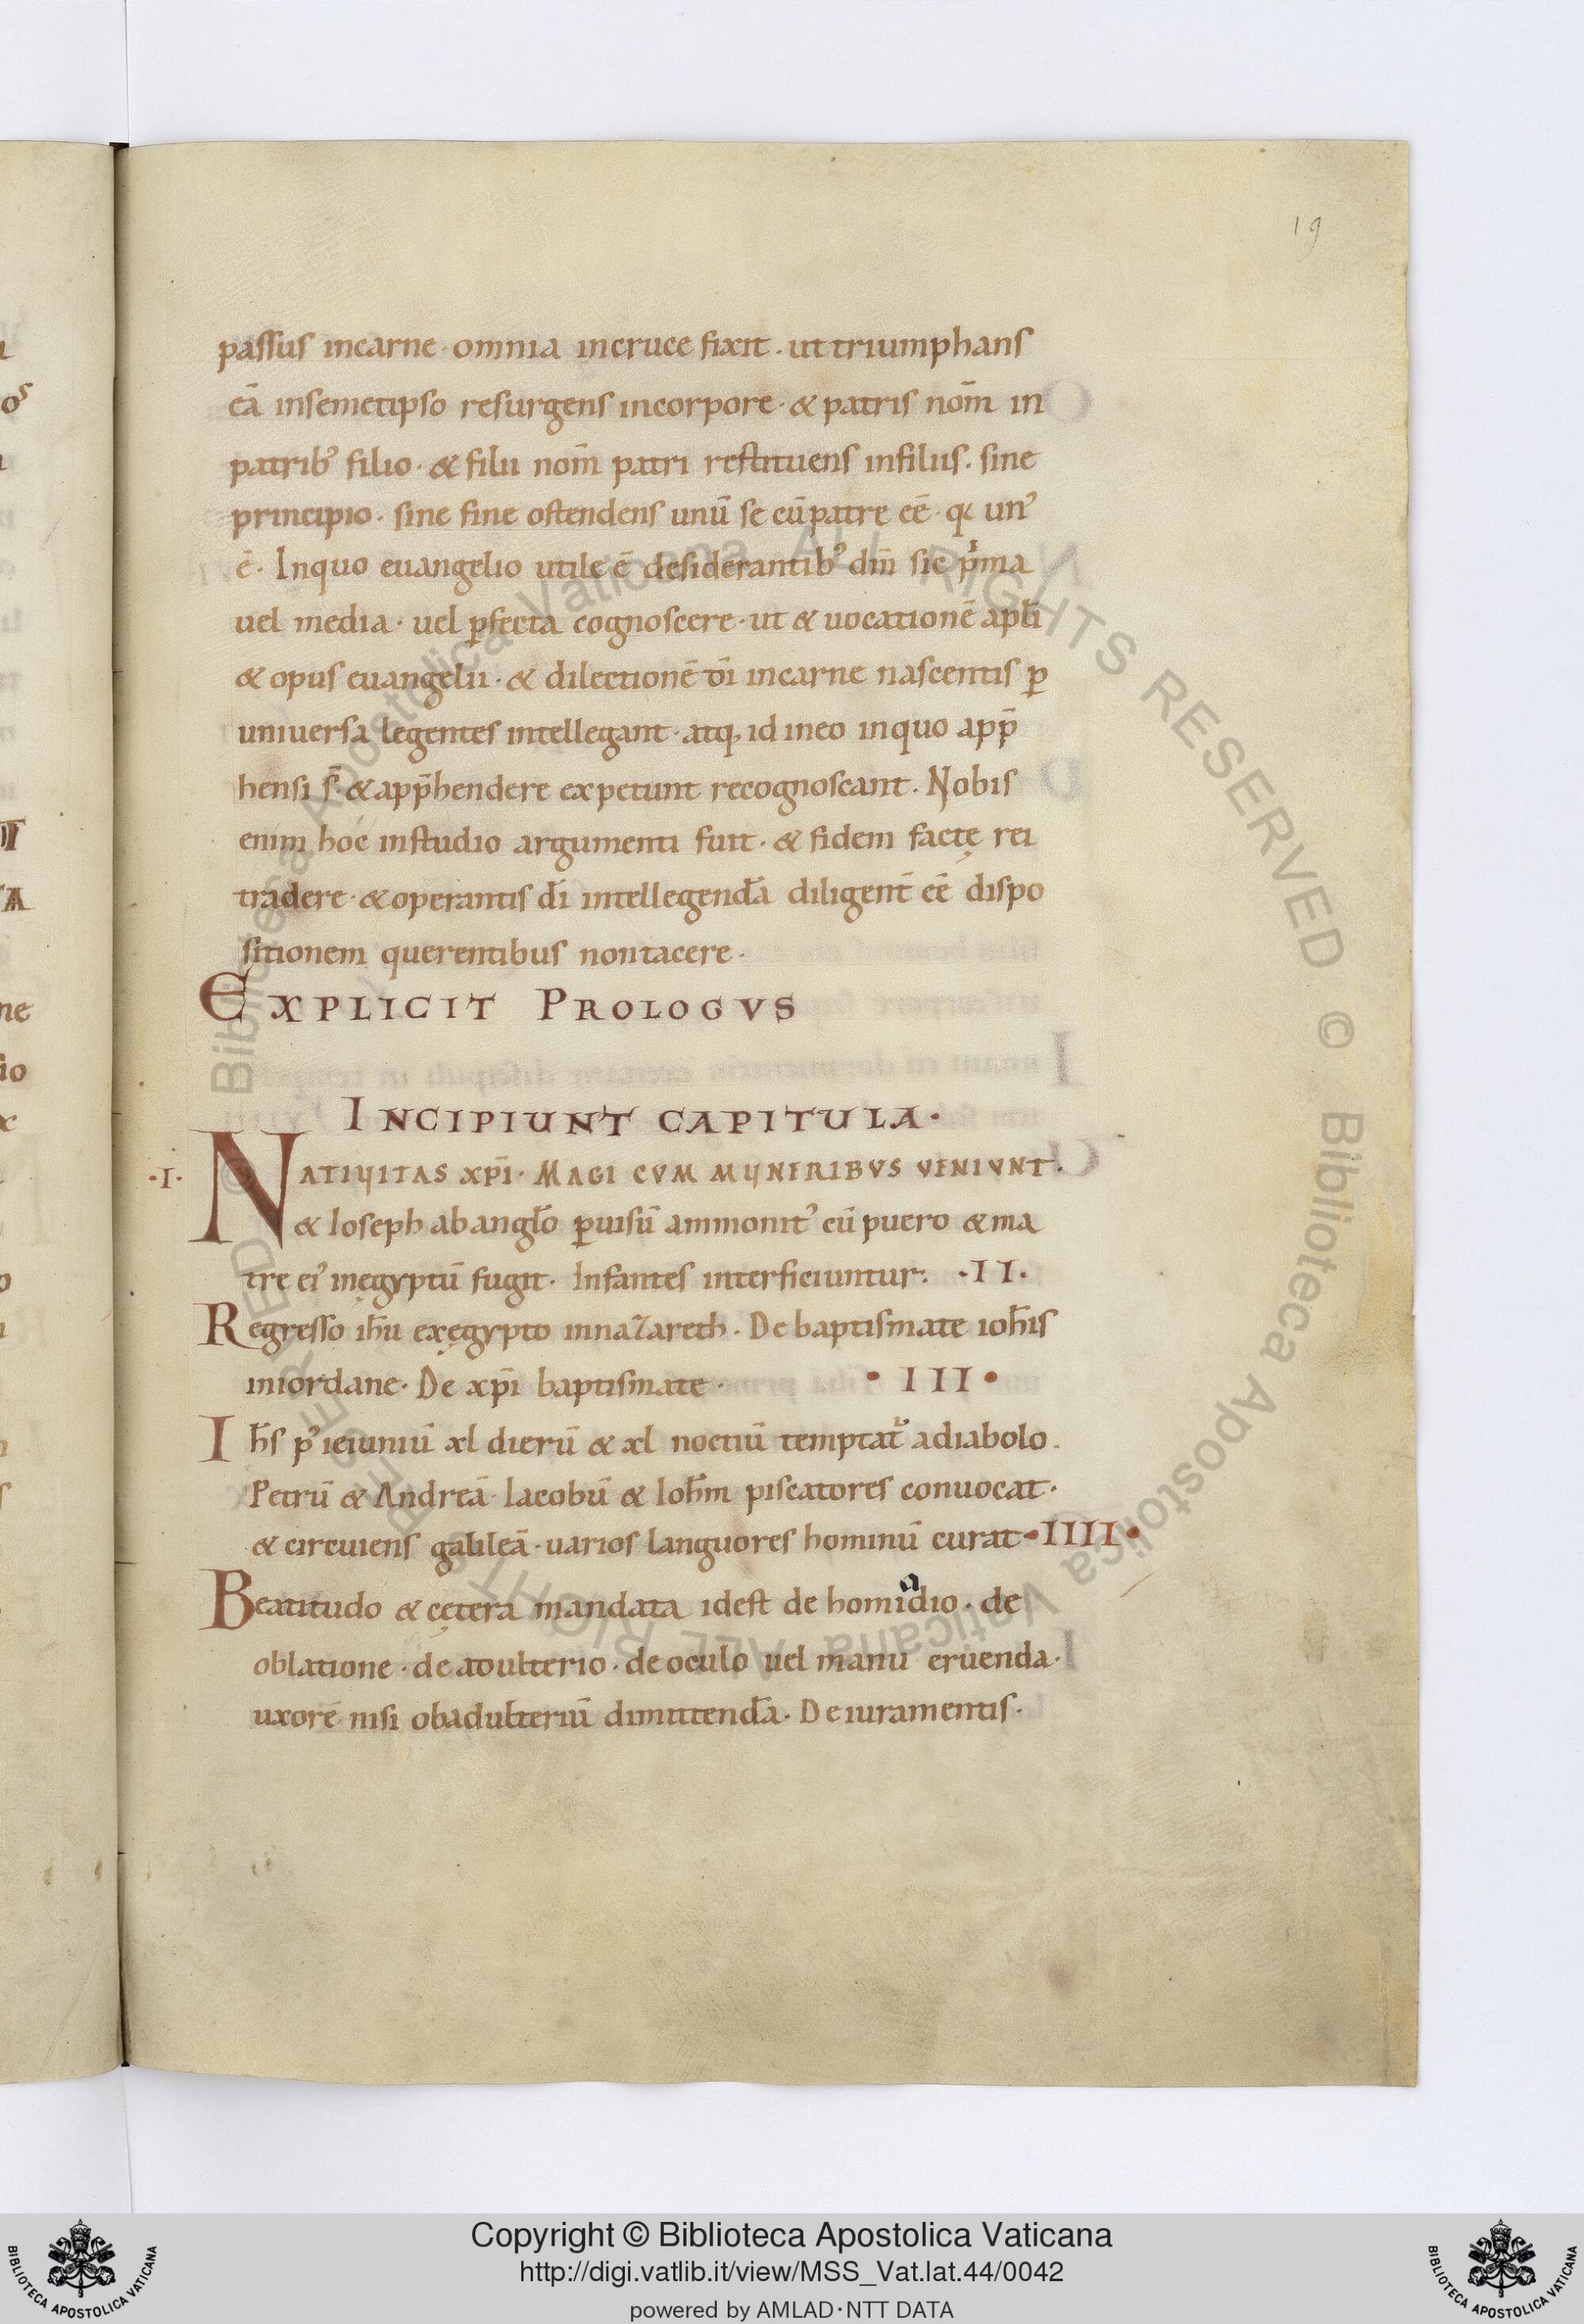 19
passus incarne · omnia incruce fixit · ut triumphans
eā insemetipso resurgens incorpore · & patris nom̄ in
patrib᾽ filio · & filii nom̄ patri restituens infiliis · sine
principio · sine fine ostendens unū se cūpatre eē · q· un᾽
ē · Inquo euangelio utile ē desiderantib᾽ dm̄ sic pͥma
uel media · uel ꝑfecta cognoscere · ut & uocationē apłi
& opus euangelii · & dilectionē d̄i incarne nascentis ꝑ
uniuersa legentes intellegant · atq; id ineo inquo app̄
hensi s̄ · & app̄hendere expetunt recognoscant · Nobis
enim hoc instudio argumenti fuit · & fidem factę rei
tradere · & operantis d̄i intellegend̄a diligent̄ eē dispo
sitionem querentibus nontacere ·
EXPLICIT PROLOGVS
INCIPIUNT CAPITULA ·
·I· NATIVITAS XP̄I · MAGI CVM MVNERIBVS VENIVNT ·
& Ioseph ab angło ꝑuisū ammonit᾽ cū puero & ma
tre ei᾽ inęgyptū fugit · Infantes interficiuntur : ·II·
Regresso ih̄u exęgypto innazareth · De baptismate ioh̄is
iniordane · De xp̄i baptismate · · III ·
Ih̄s p᾽ ieiuniū xl dierū & xl noctiū temptat᷑ adiabolo ·
Petrū & Andreā · Iacobū & Ioh̄m piscatores conuocat ·
& circuiens galileā · uarios languores hominū curat · IIII ·
Beatitudo & cętera mandata idest de homiᵃdio · de
oblatione · de adulterio · de oculo uel manu eruenda ·
uxorē nisi obadulteriū dimittend̄a · De iuramentis ·
© Biblioteca Apostolica Vaticana ALL RIGHTS RESERVED © Biblioteca Apostolica Vaticana ALL RIGHTS RESERVED
Copyright © Biblioteca Apostolica Vaticana
http://digi.vatlib.it/view/MSS_Vat.lat.44/0042
powered by AMLAD·NTT DATA
BIBLIOTECA APOSTOLICA VATICANA
BIBLIOTECA APOSTOLICA VATICANA